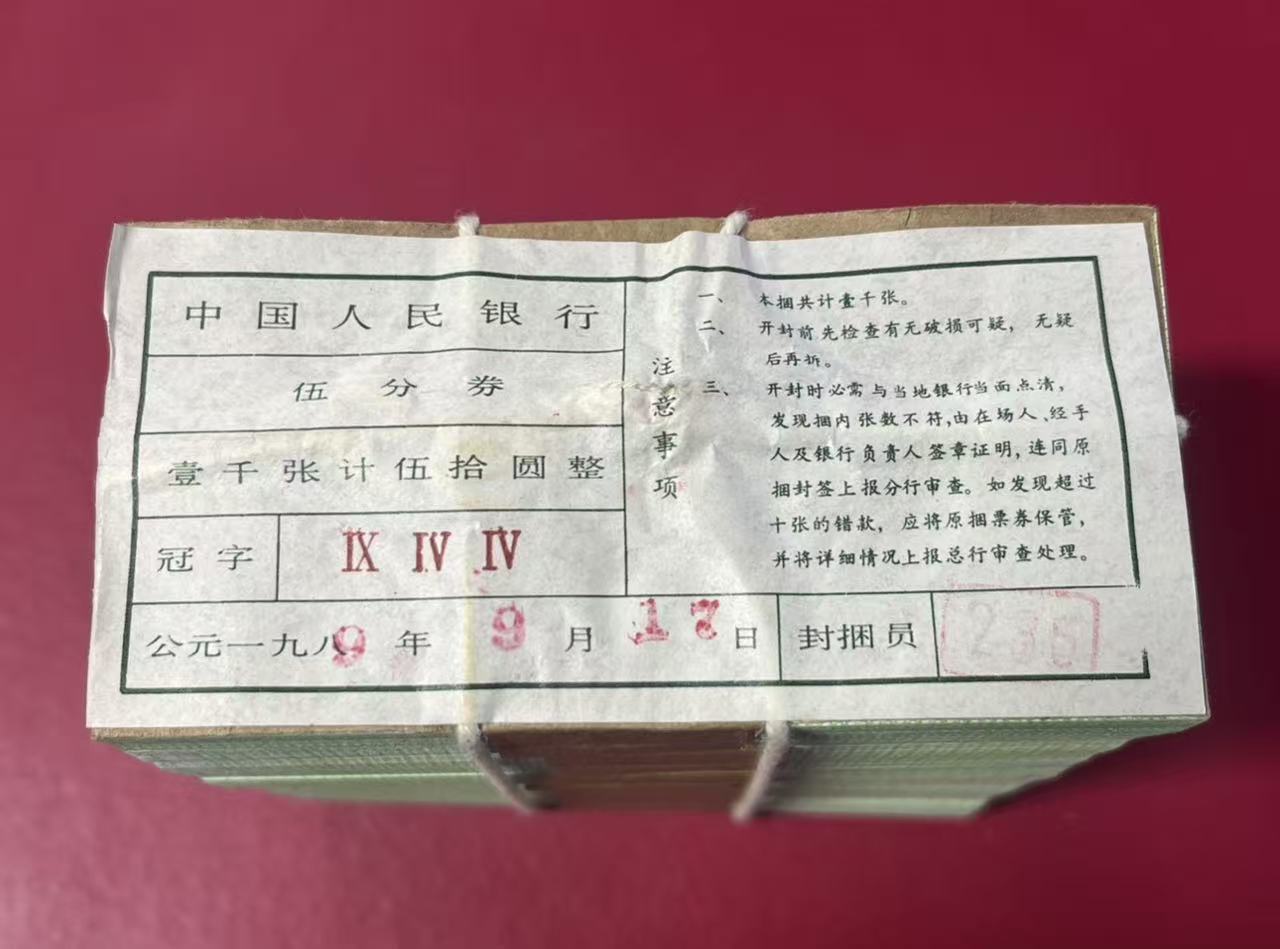 中国人民银行
伍分券
壹千张计伍拾圆整
冠字 IX IV IV
公元一九八9年9月17日 封捆员 236
注意事项
一、本捆共计壹千张。
二、开封前先检查有无破损可疑，无疑
后再拆。
三、开封时必需与当地银行当面点清，
发现捆内张数不符,由在场人、经手
人及银行负责人签章证明,连同原
捆封签上报分行审查。如发现超过
十张的错款，应将原捆票券保管，
并将详细情况上报总行审查处理。